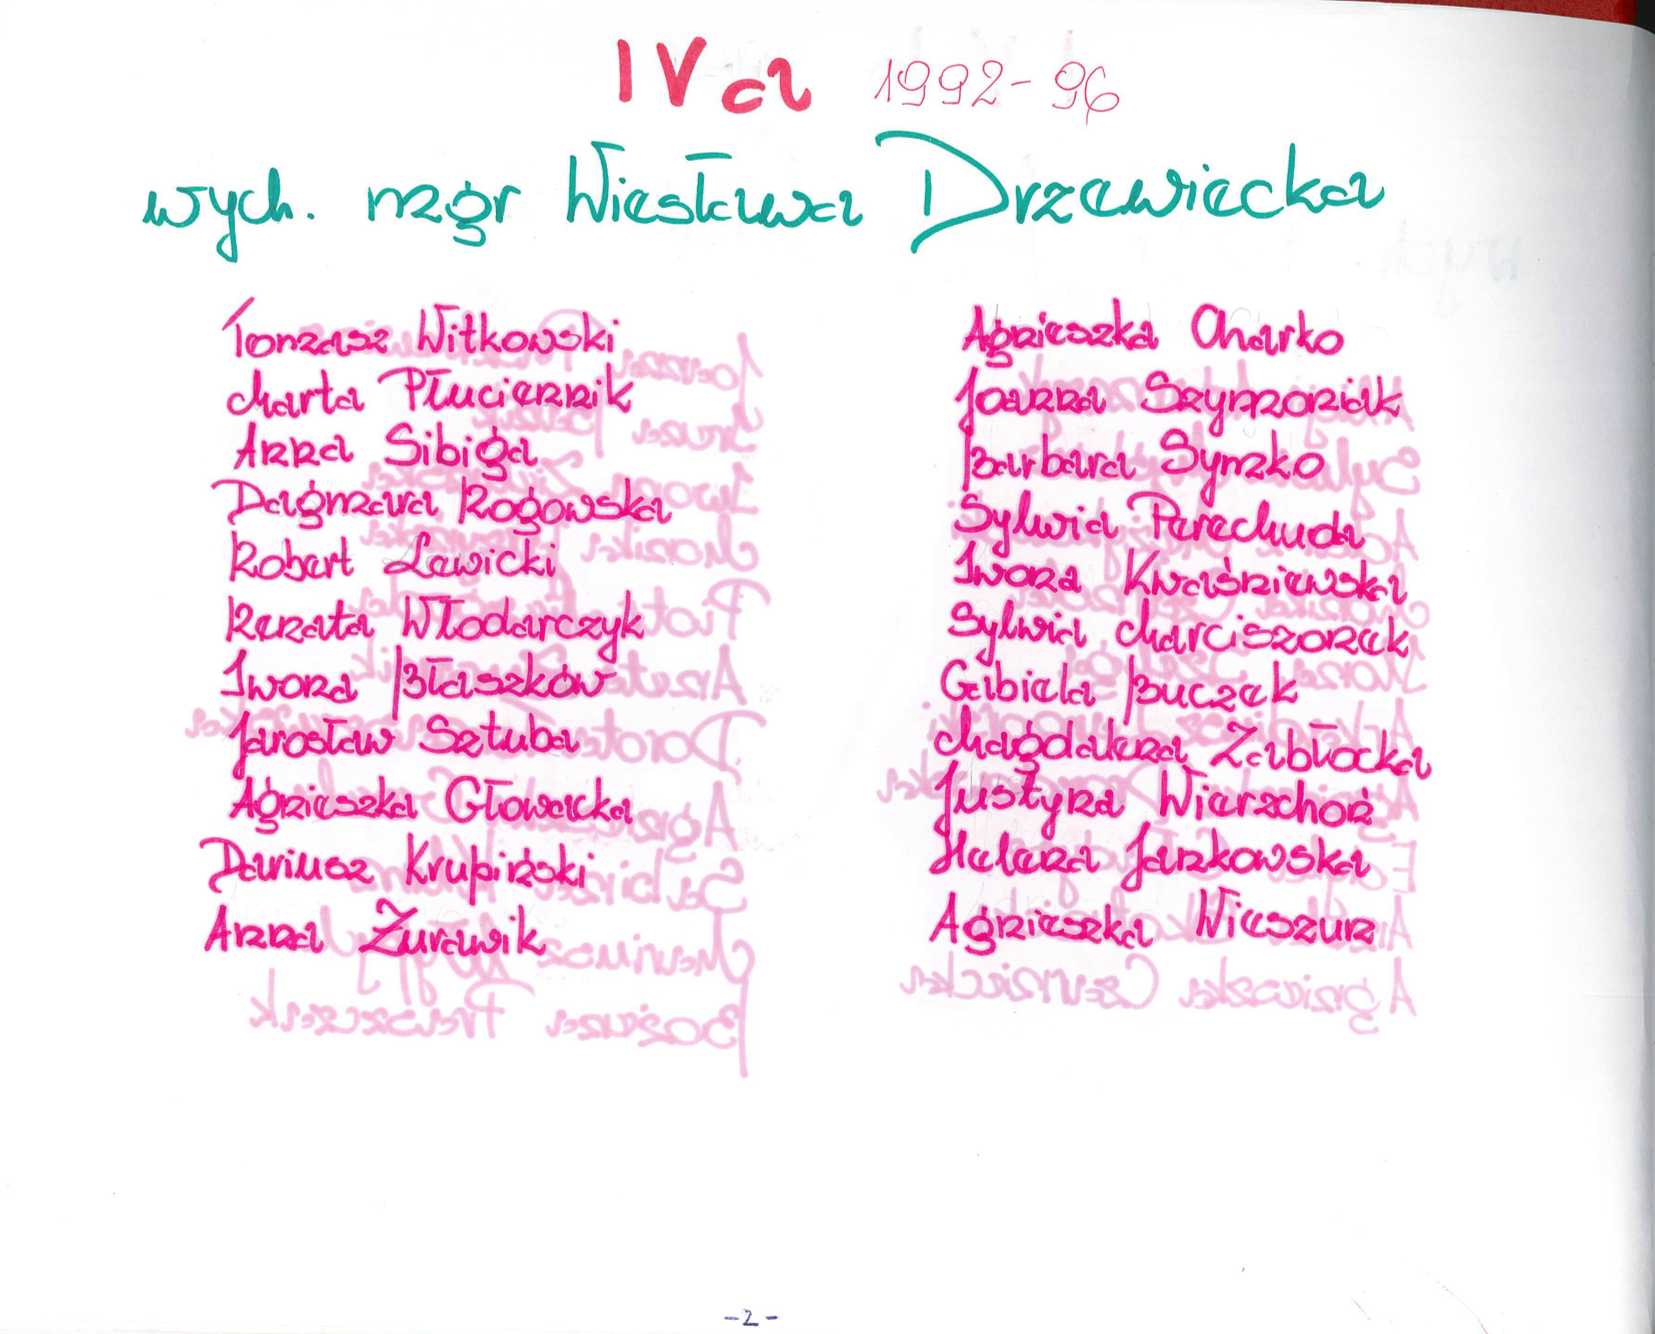 IV a 1992-96
wych. mgr Wiesława Drzewiecka
Tomasz Witkowski
Marta Płuciennik
Anna Sibiga
Dagmara Rogowska
Robert Lewicki
Renata Włodarczyk
Iwona Błaszków
Jarosław Sztuba
Agnieszka Głowacka
Dariusz Krupiński
Anna Żurawik
Agnieszka Charko
Joanna Szymoniak
Barbara Symko
Sylwia Parechuda
Iwona Kwaśniewska
Sylwia Marciszonek
Gabiela Buczek
Magdalena Zabłocka
Justyna Wierzchoń
Helena Jankowska
Agnieszka Wieszun
-2-